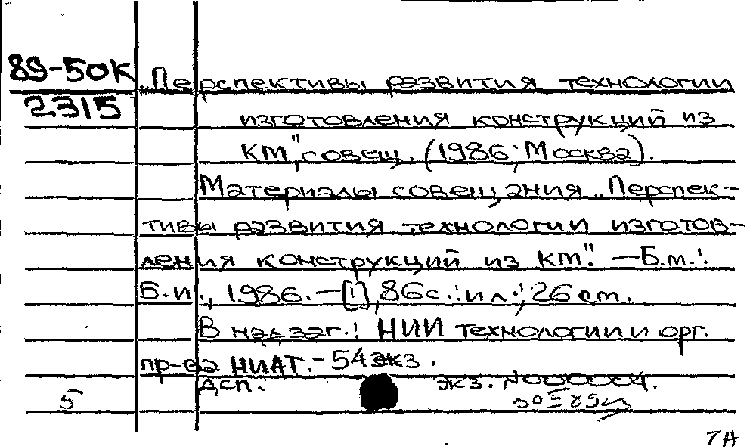 89-50К „Перспективы развития технологии
2315
изготовления конструкций из
КМ", совещ. (1986; Москва).
Материалы совещания „Перспек-
тивы развития технологии изготов-
ления конструкций из КМ". — Б.м.:
Б.и., 1986. — [1], 86 с.: ил.; 26 см.
В надзаг.: НИИ технологии и орг.
пр-ва НИАТ. - 54 экз.
ДСП. экз. №000004.
5
7А